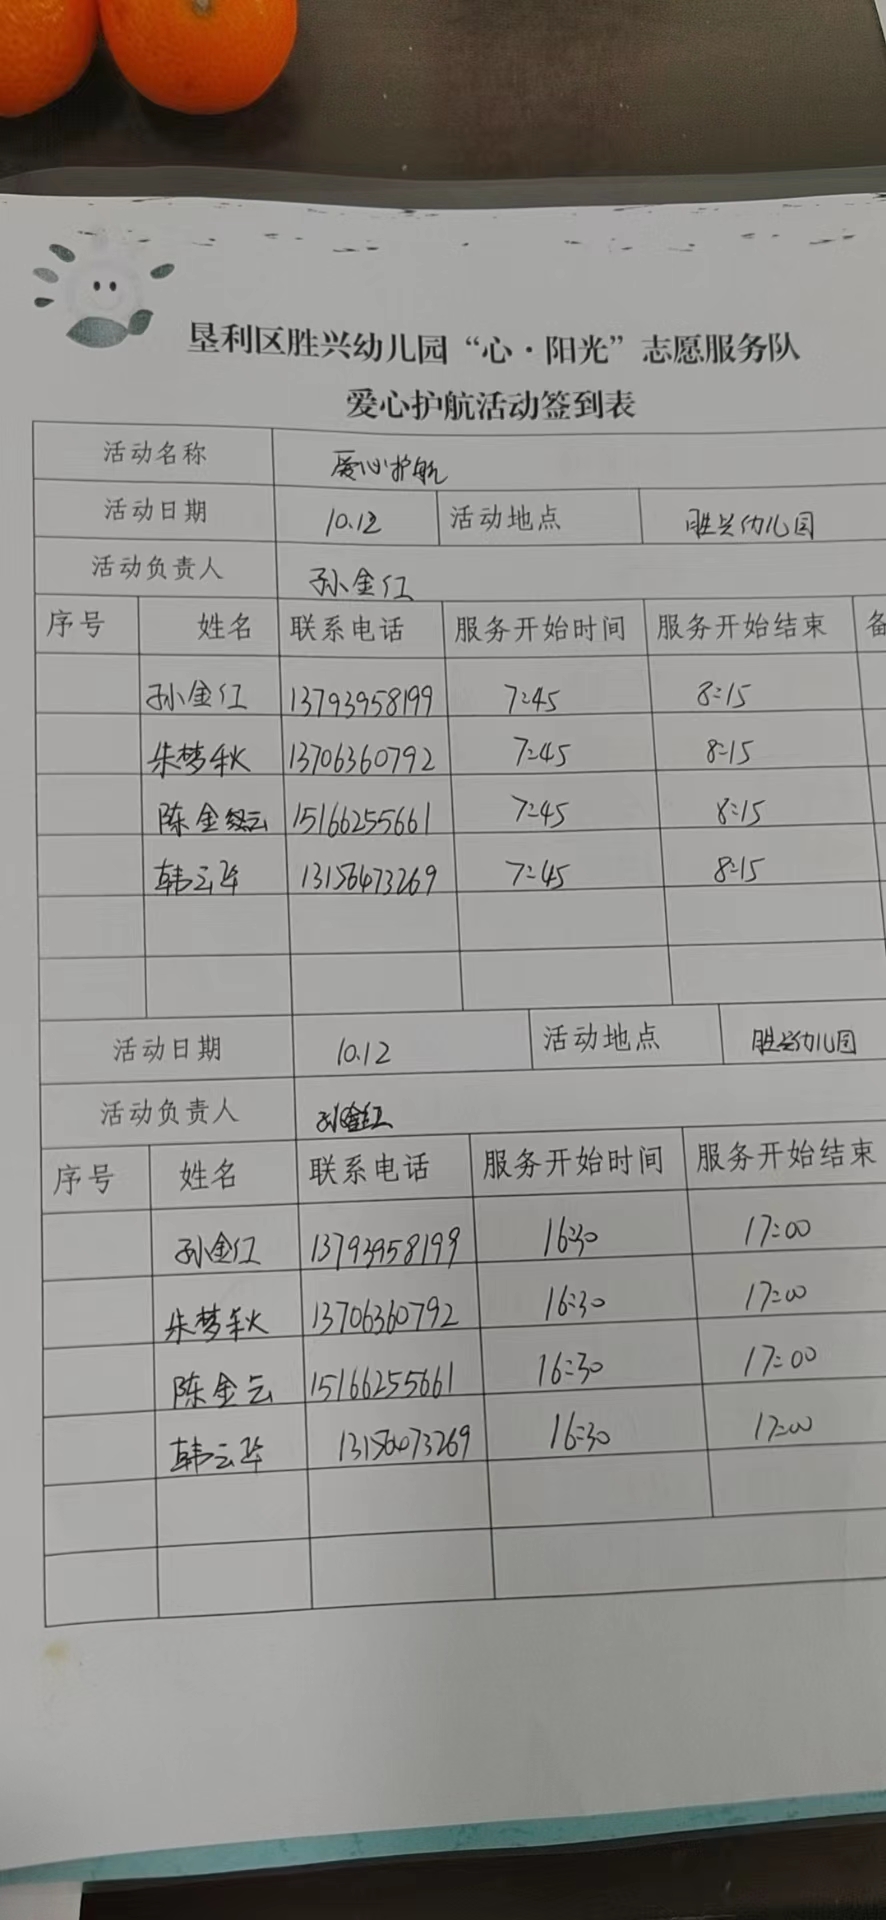 垦利区胜兴幼儿园“心·阳光”志愿服务队
爱心护航活动签到表
活动名称 爱心护航
活动日期 10.12 活动地点 胜兴幼儿园
活动负责人 孙金红
序号 姓名 联系电话 服务开始时间 服务开始结束 备
孙金红 13793958199 7:45 8:15
朱梦秋 13706360792 7:45 8:15
陈金云 15166255661 7:45 8:15
韩云华 13156473269 7:45 8:15
活动日期 10.12 活动地点 胜兴幼儿园
活动负责人 孙金红
序号 姓名 联系电话 服务开始时间 服务开始结束
孙金红 13793958199 16:30 17:00
朱梦秋 13706360792 16:30 17:00
陈金云 15166255661 16:30 17:00
韩云华 13156473269 16:30 17:00